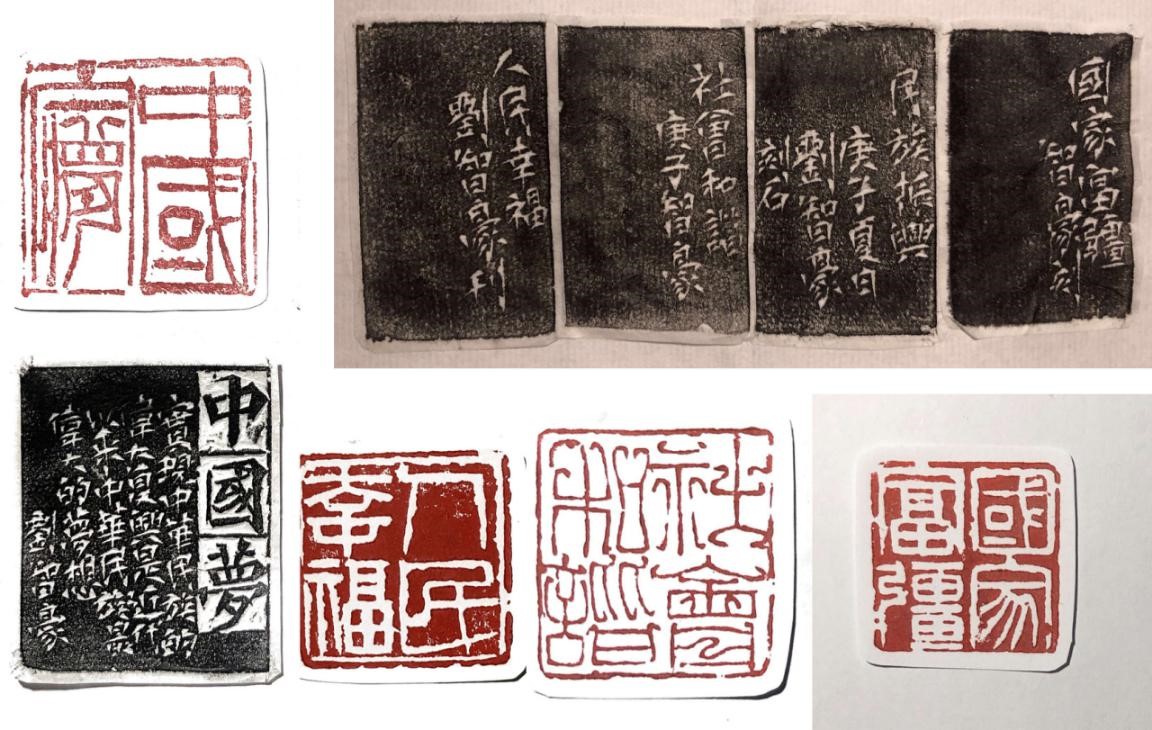 中國
夢
國家富疆
智豪刻
民族振興
庚子夏日
劉智豪
刻石
社會和諧
庚子智豪
人民幸福
劉智豪刊
中國夢
實現中華民族的
偉大復興是近代
以來中華民族最
偉大的夢想
劉智豪
人民
幸福
社會
和諧
國家
富彊